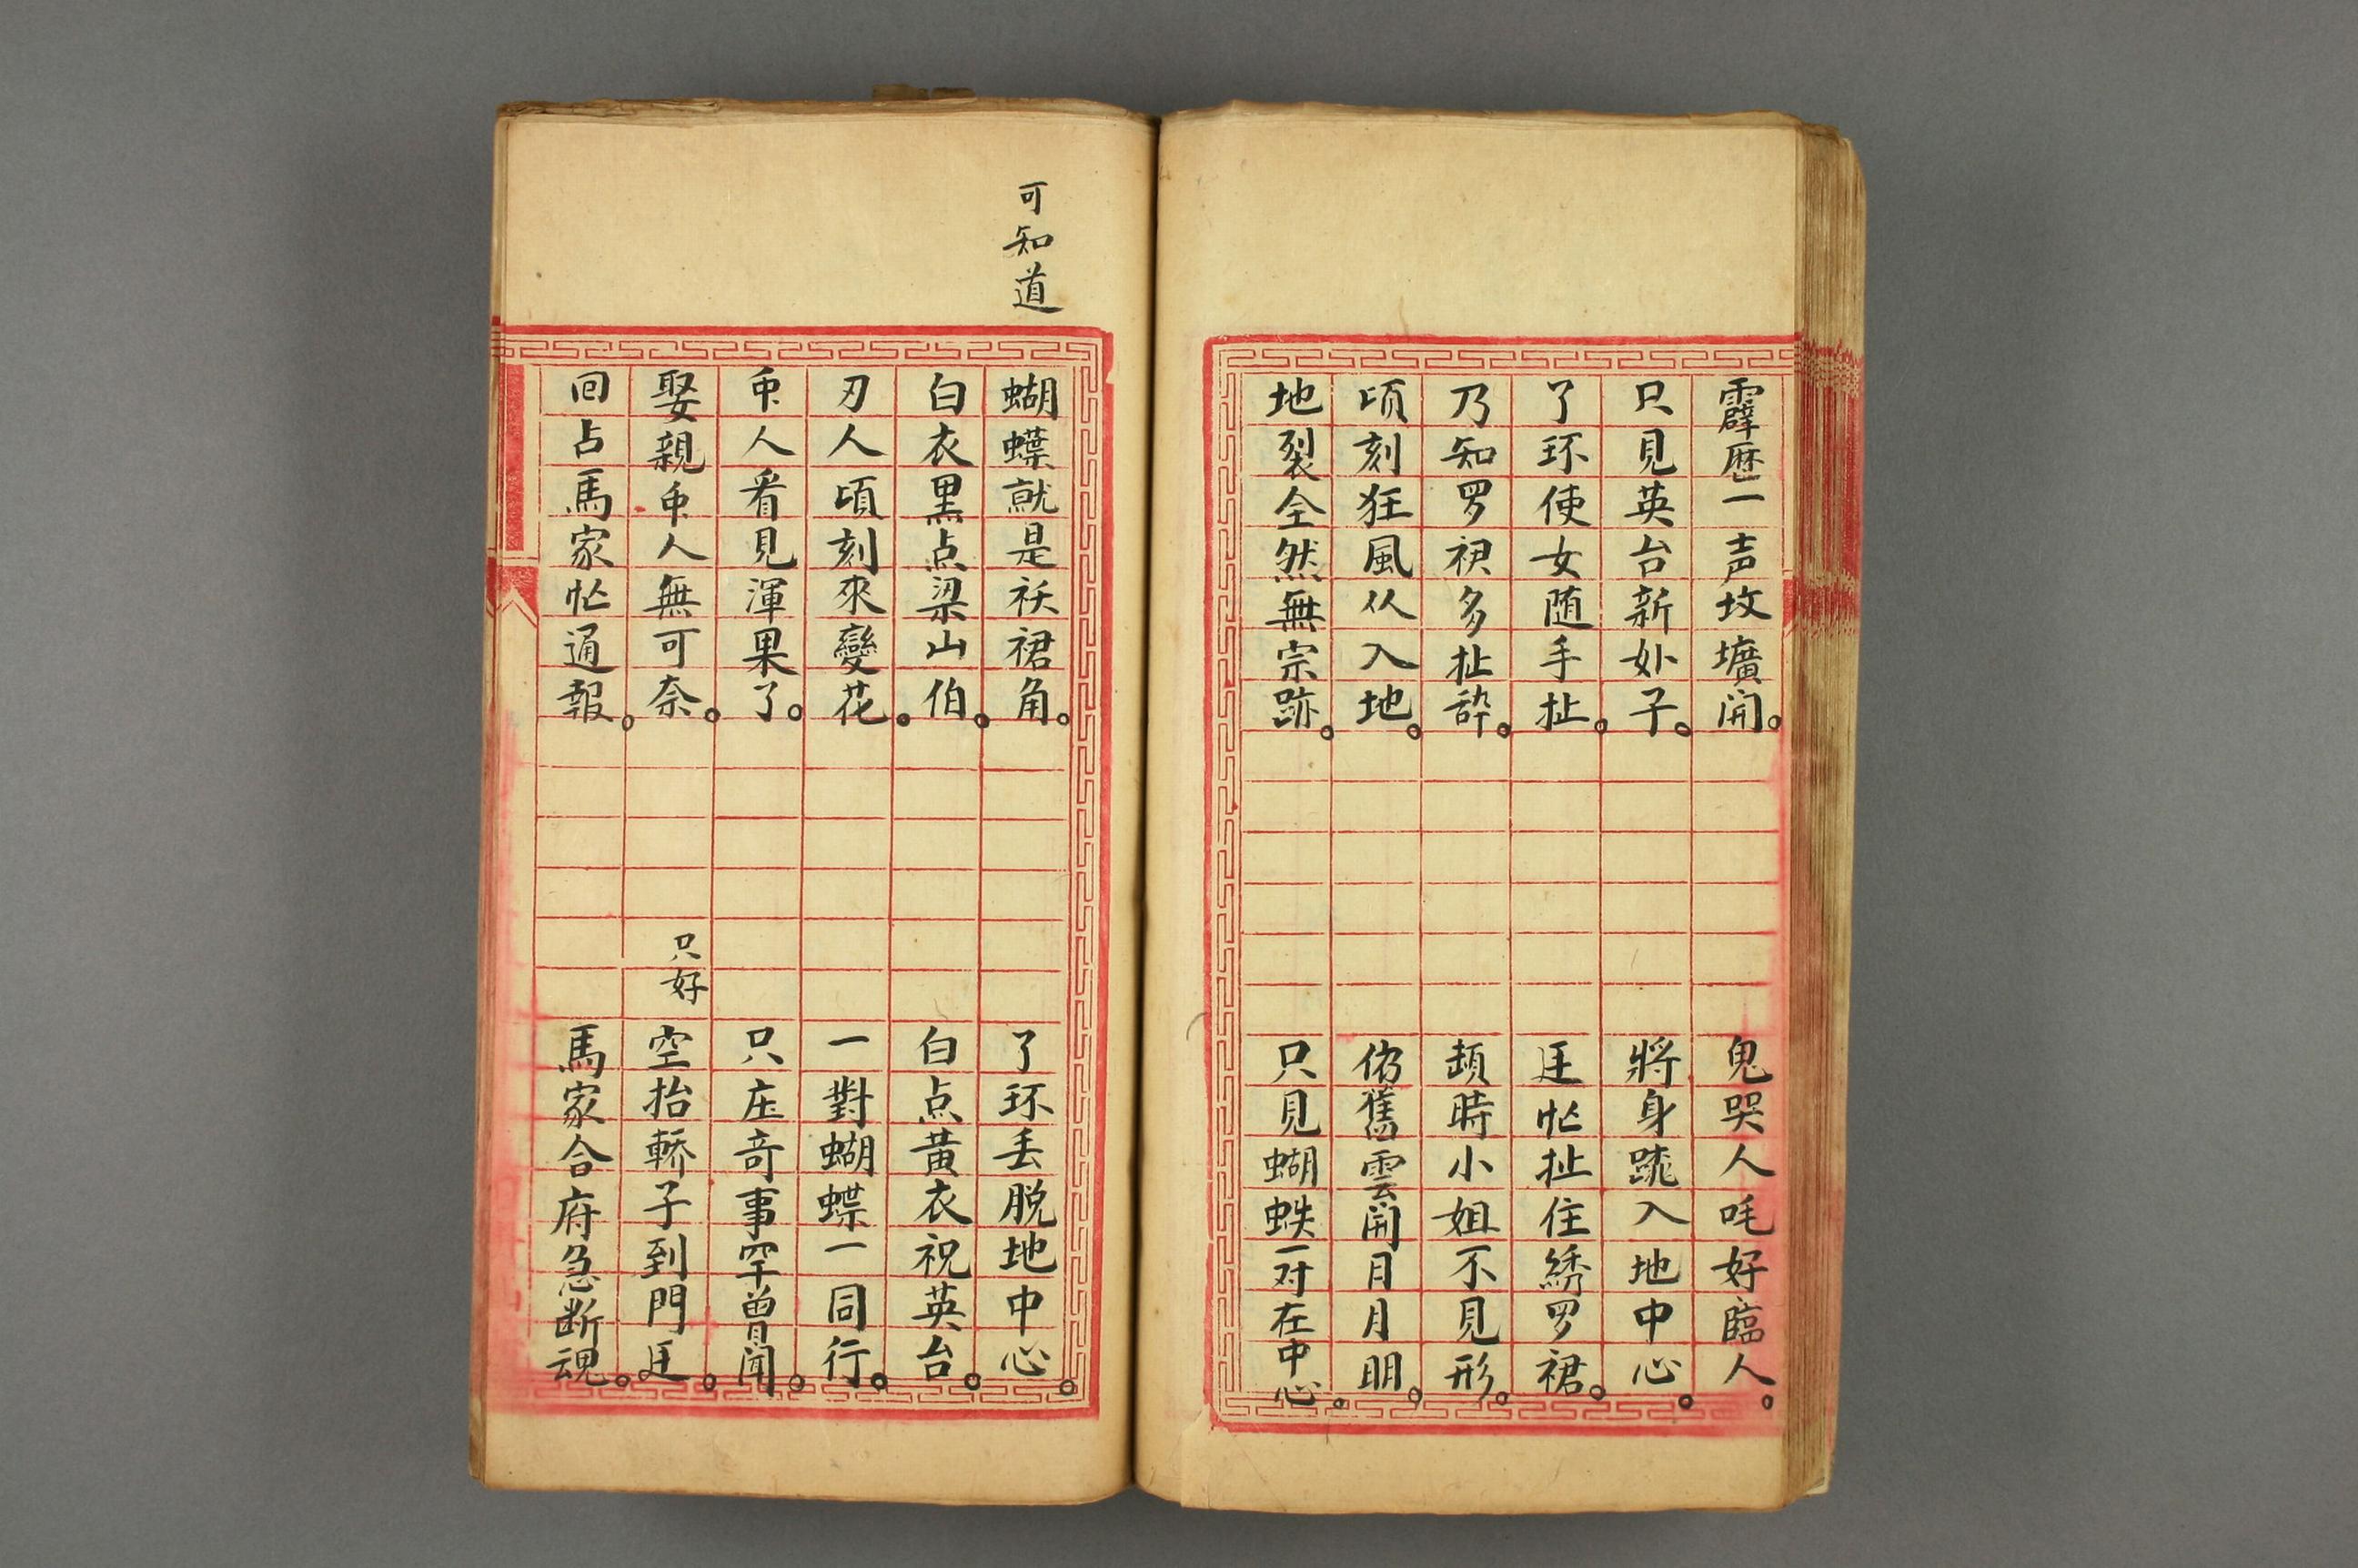 霹歷一声坟壙開。 鬼哭人吒好臨人。
只見英台新妚子。 將身跳入地中心。
了环使女随手扯。 迋忙扯住綉罗裙。
乃知罗裙多扯碎。 頼時小姐不見形。
頃刻狂風从入地。 仴舊雲開日月明。
地裂全然無宗跡。 只見蝴蛈一对在中心。
可知道
蝴蝶就是袄裙角。 了环丢脱地中心。
白衣黑点梁山伯。 白点黃衣祝英台。
刃人頃刻來變花。 一對蝴蝶一同行。
帀人看見渾果了。 只庄竒事罕曾聞。
娶親帀人無可奈。 只好空抬轎子到門迋。
回占馬家忙通報。 馬家合府急断魂。